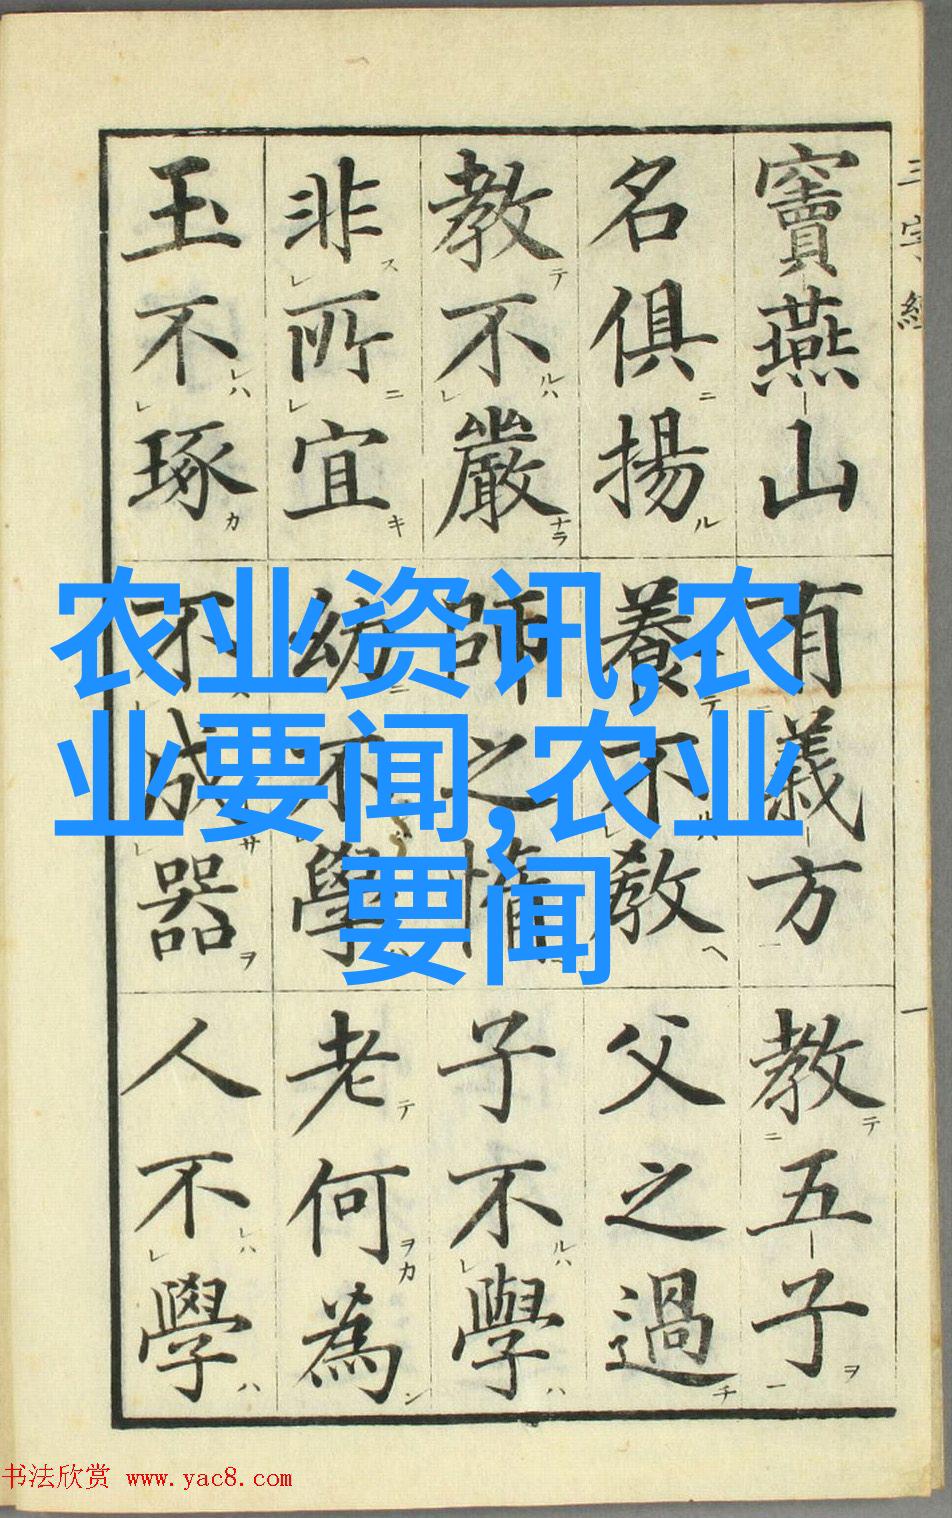 三字經
一
竇燕山有義方教五子
名俱揚養不教父之過
教不嚴師之惰子不學
非所宜幼不學老何為
玉不琢不成器人不學
农业资讯,农
业要闻,农业
要闻
书法欣赏 www.yac8.com